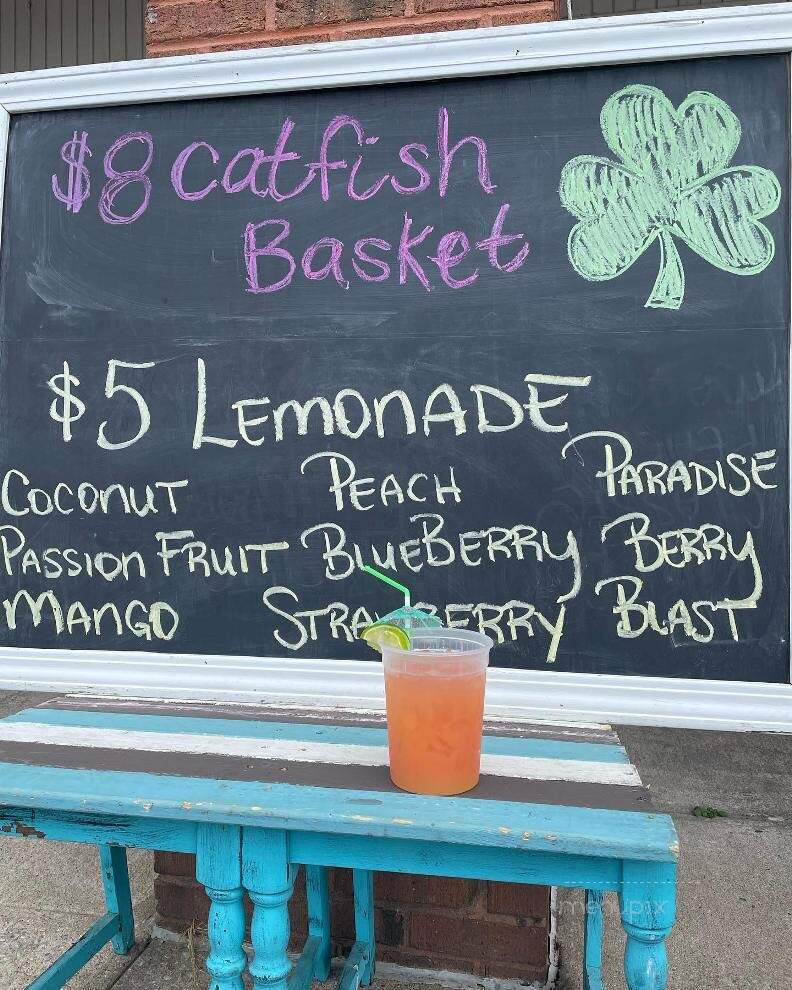 $8 catfish
Basket
$5 LEMONADE
COCONUT PEACH PARADISE
PASSION FRUIT BLUEBERRY BERRY
MANGO STRAWBERRY BLAST
menupix